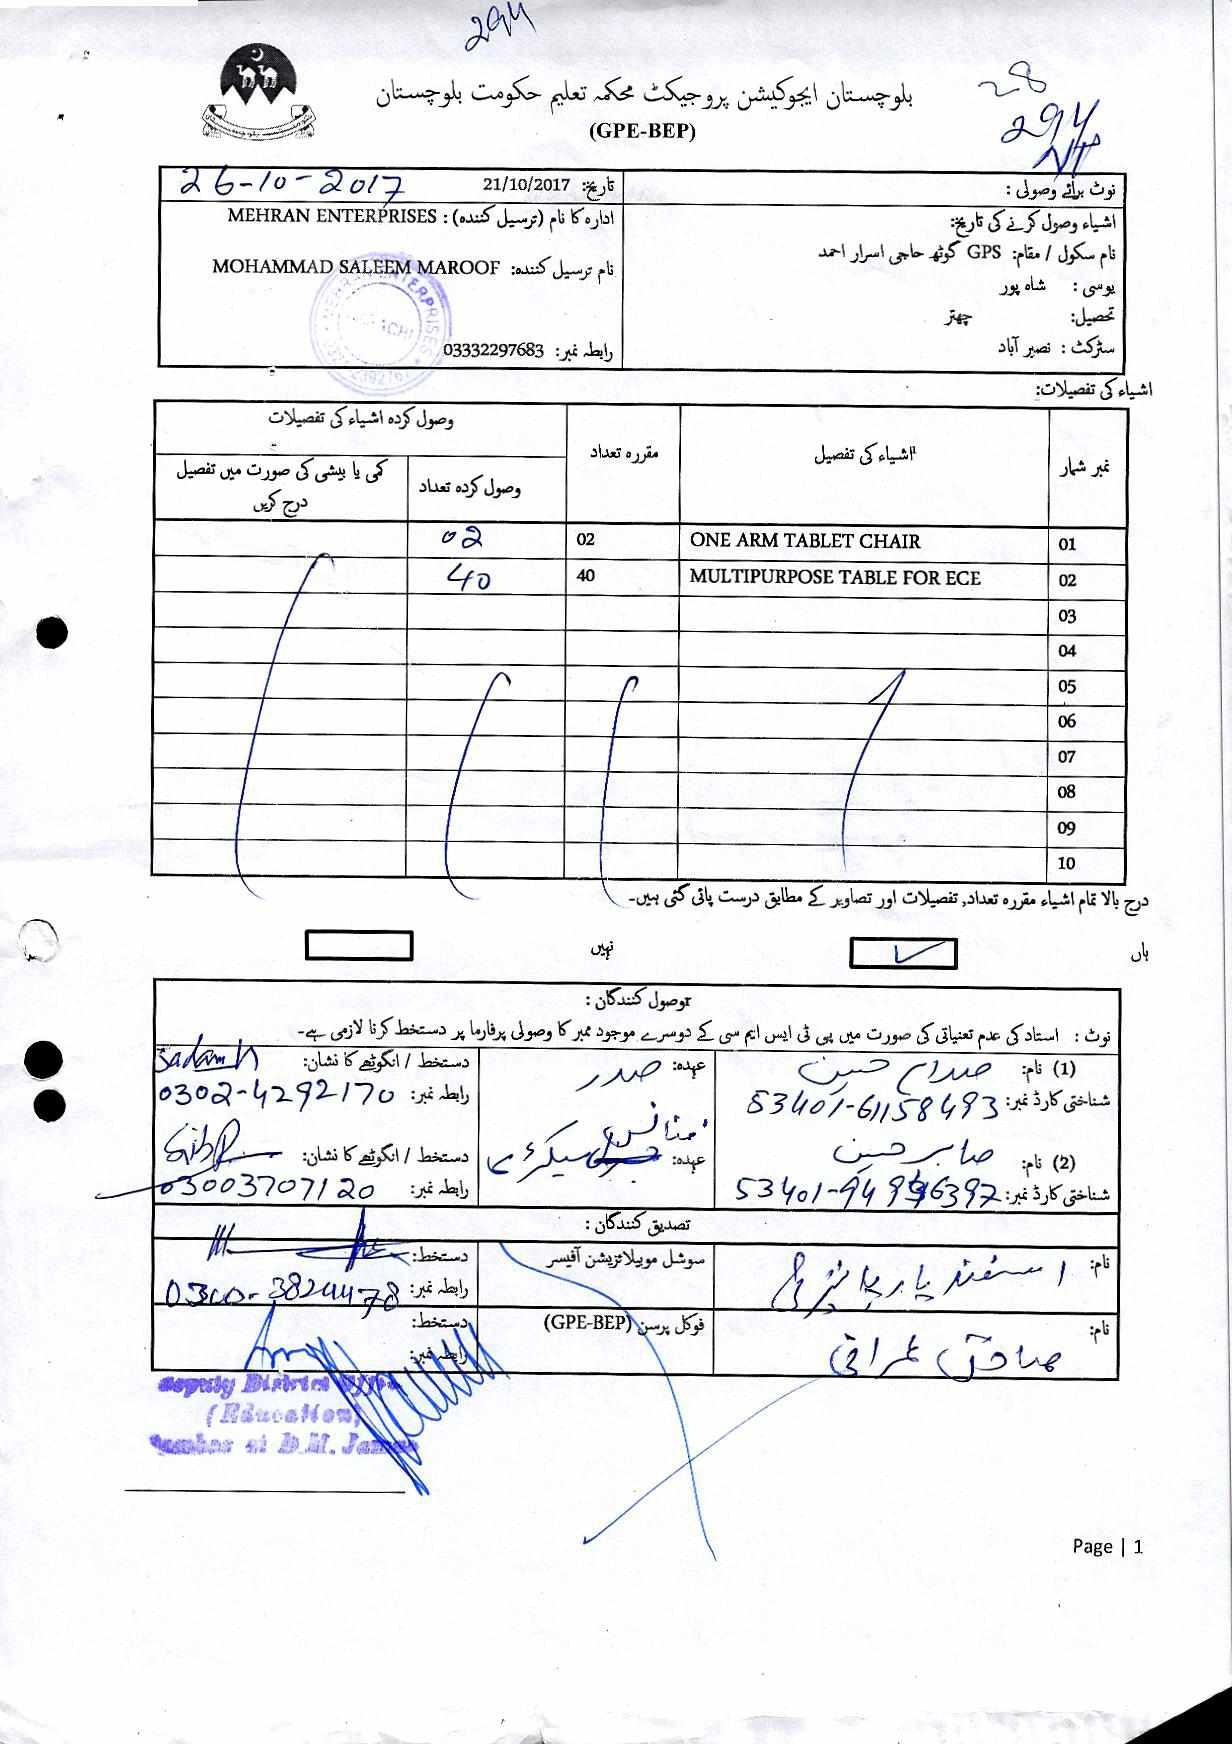 294
28
بلوچستان ایجوکیشن پروجیکٹ محکمہ تعلیم حکومت بلوچستان
(GPE-BEP)
294
NP
نوٹ برائے وصولی :
تاریخ: 21/10/2017 26-10-2017
اشیاء وصول کرنے کی تاریخ:
نام سکول / مقام: GPS گوٹھ حاجی اسرار احمد
یوسی : شاہ پور
تحصیل: چھتر
سٹرکٹ : نصیر آباد
ادارہ کا نام (ترسیل کنندہ) : MEHRAN ENTERPRISES
نام ترسیل کنندہ: MOHAMMAD SALEEM MAROOF
رابطہ نمبر: 03332297683
MEHRAN ENTERPRISES
اشیاء کی تفصیلات:
نمبر شمار اشیاء کی تفصیل مقررہ تعداد وصول کردہ اشیاء کی تفصیلات
وصول کردہ تعداد کمی یا بیشی کی صورت میں تفصیل درج کریں
01 ONE ARM TABLET CHAIR 02 02
02 MULTIPURPOSE TABLE FOR ECE 40 40
03
04
05
06
07
08
09
10
درج بالا تمام اشیاء مقررہ تعداد, تفصیلات اور تصاویر کے مطابق درست پائی گئی ہیں۔
ہاں نہیں
وصول کنندگان :
نوٹ : استاد کی عدم تعنیاتی کی صورت میں پی ٹی ایس ایم سی کے دوسرے موجود ممبر کا وصولی پرفارما پر دستخط کرنا لازمی ہے۔
(1) نام: صدام حسین عہدہ: صدر دستخط / انگوٹھے کا نشان: Sadam h
شناختی کارڈ نمبر: 53401-61158493 رابطہ نمبر: 0302-4292170
(2) نام: صابر حسین عہدہ: فنانس سیکرٹری دستخط / انگوٹھے کا نشان:
شناختی کارڈ نمبر: رابطہ نمبر: 03003707120
تصدیق کنندگان :
نام: اسفند یار سوشل موبیلائزیشن آفیسر دستخط:
رابطہ نمبر: 0300-3824478
نام: صادق عمرانی فوکل پرسن (GPE-BEP) دستخط:
رابطہ نمبر:
Deputy District
(Education)
at D.M. Jamali
Page | 1